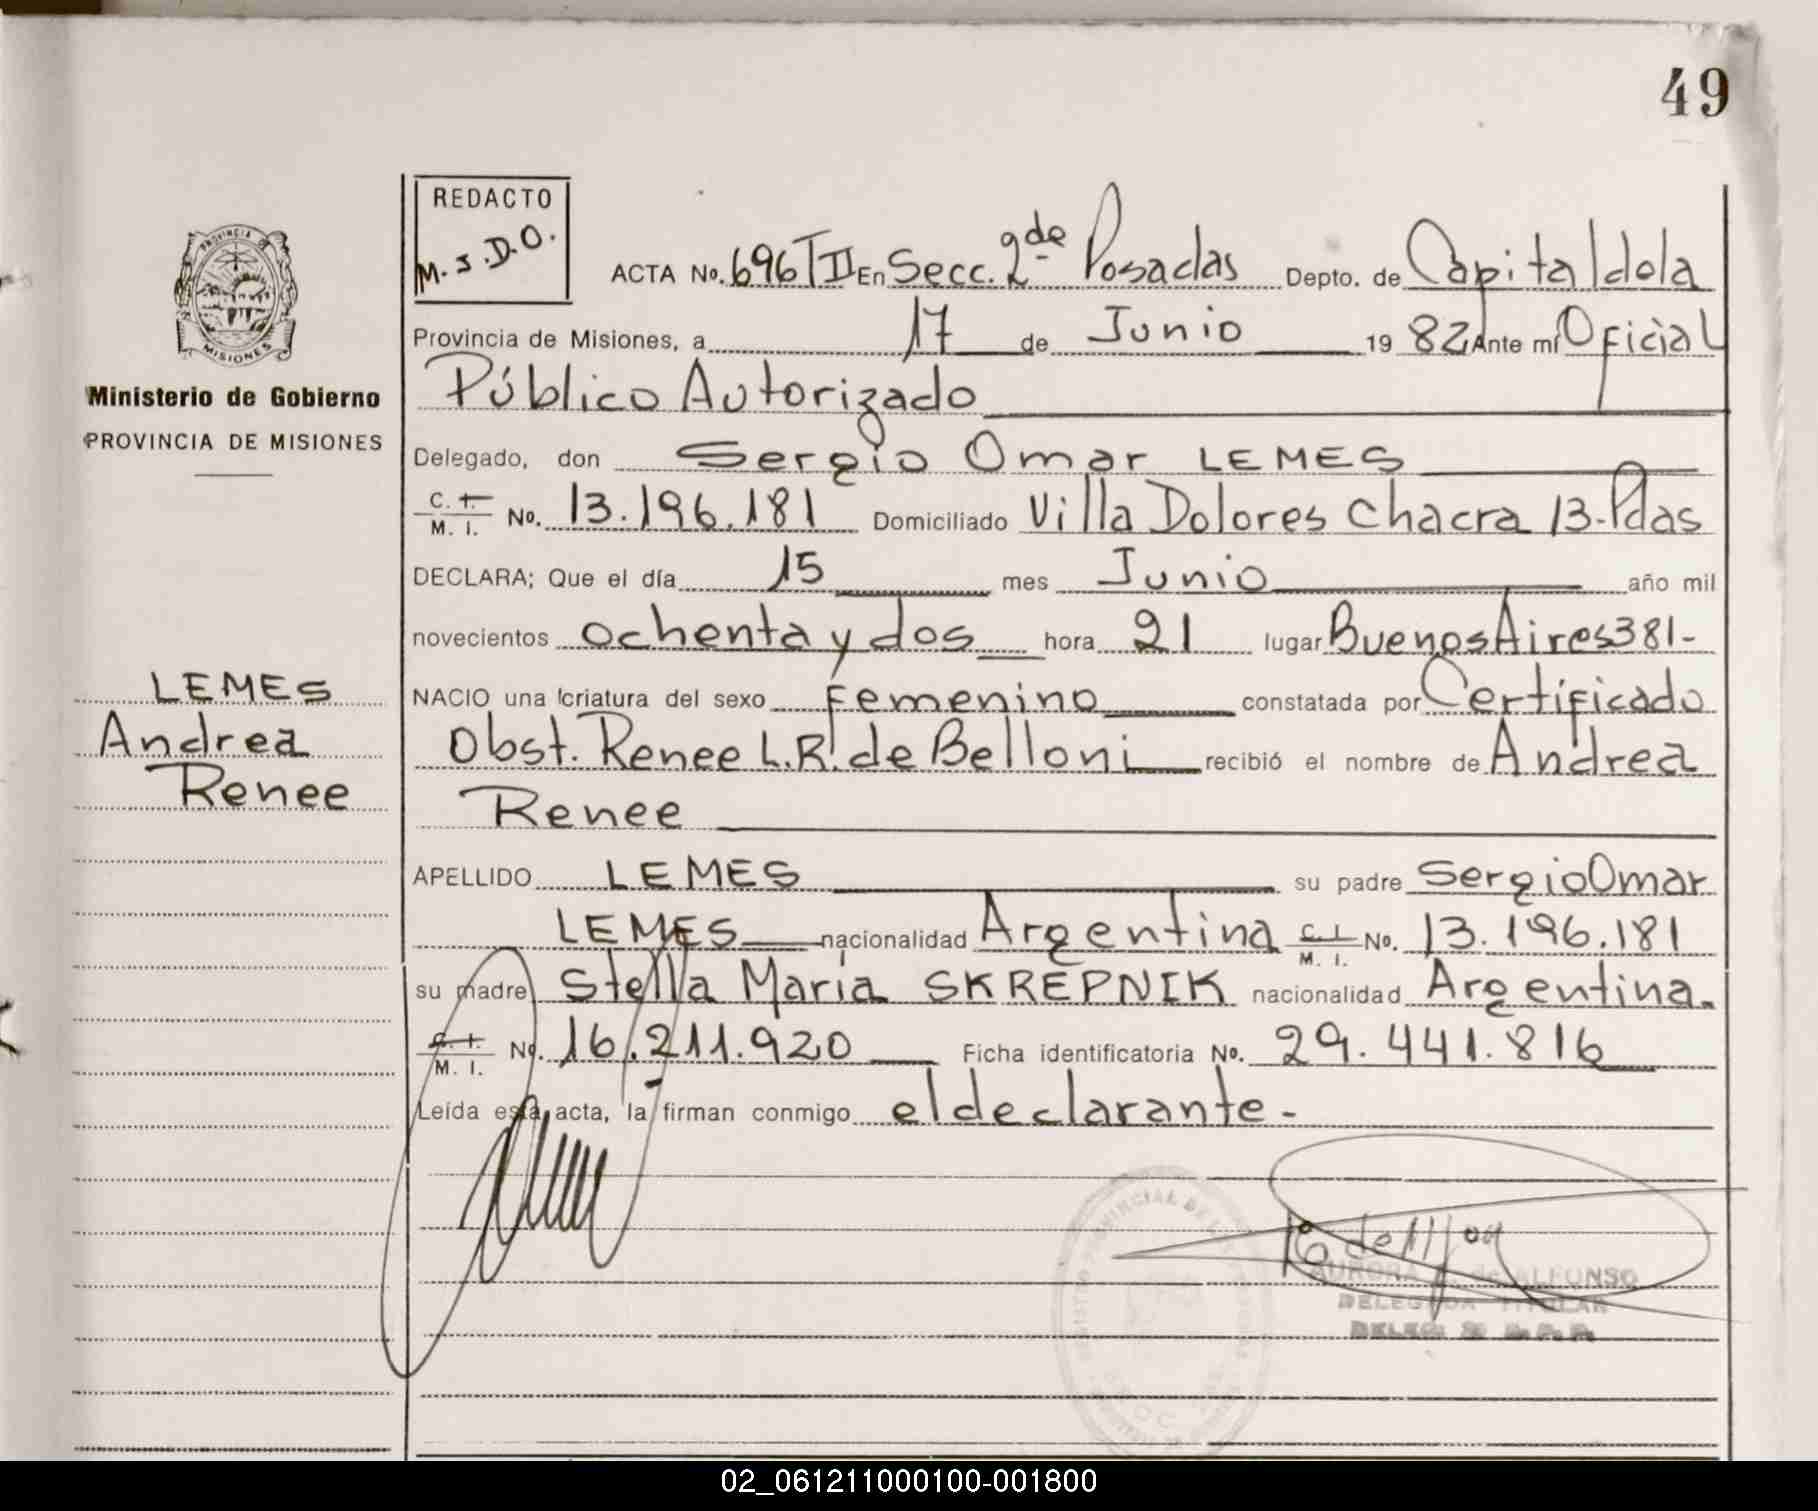 49
REDACTO
M.J.D.O.
PROVINCIA DE
MISIONES
Ministerio de Gobierno
PROVINCIA DE MISIONES
LEMES
Andrea
Renee
ACTA No. 696 T II En Secc. 2da de Posadas Depto. de Capital de la
Provincia de Misiones, a 17 de Junio 1982 Ante mí Oficial
Público Autorizado
Delegado, don Sergio Omar LEMES
C. I. M. I. No. 13.196.181 Domiciliado Villa Dolores Chacra 13-Pdas
DECLARA; Que el día 15 mes Junio año mil
novecientos ochenta y dos hora 21 lugar Buenos Aires 381-
NACIO una criatura del sexo Femenino constatada por Certificado
Obst. Renee L.R. de Belloni recibió el nombre de Andrea
Renee
APELLIDO LEMES su padre Sergio Omar
LEMES nacionalidad Argentina C. I. M. I. No. 13.196.181
su madre Stella María SKREPNIK nacionalidad Argentina.
C. I. M. I. No. 16.211.920 Ficha identificatoria No. 29.441.816
Leída esta acta, la firman conmigo el declarante-
AURORA de ALFONSO
DELEGADA TITULAR
02_061211000100-001800